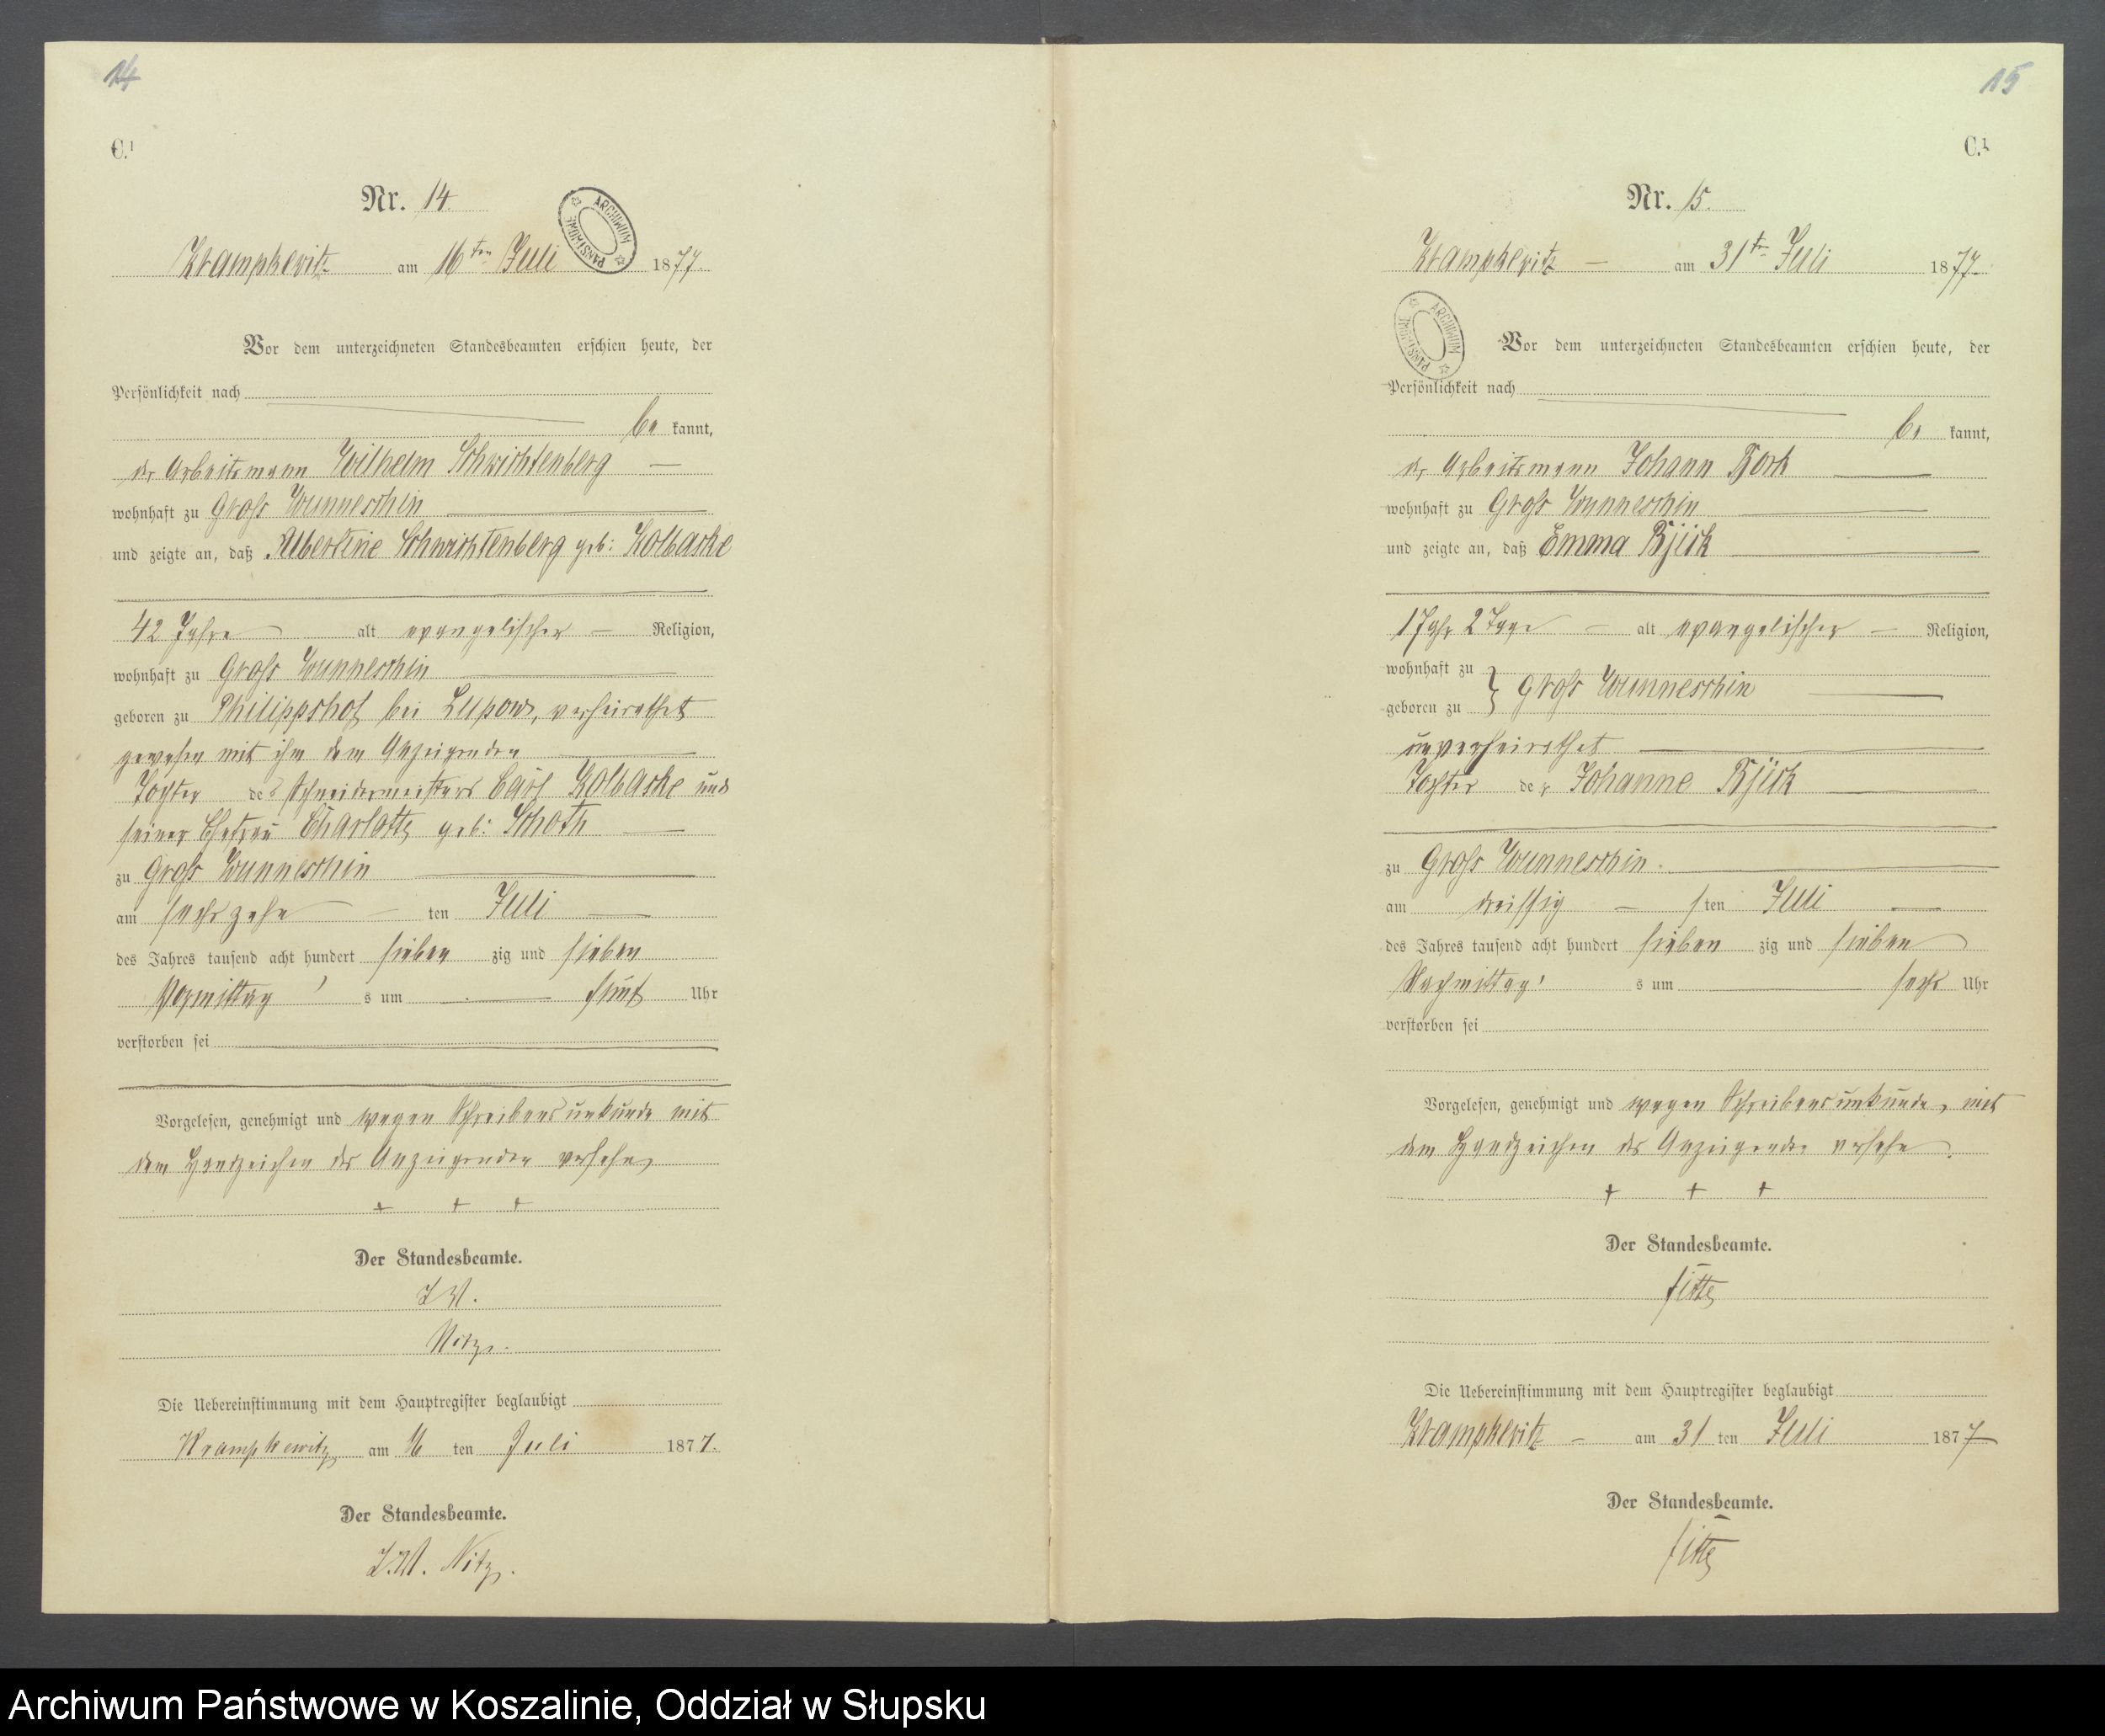 14
C.¹
Nr. 14.
ARCHIWUM PAŃSTWOWE
Krampkewitz am 16ten Juli 1877
Vor dem unterzeichneten Standesbeamten erschien heute, der
Persönlichkeit nach
be kannt,
der Arbeitsmann Wilhelm Schwichtenberg —
wohnhaft zu Groß Wunneschin
und zeigte an, daß Albertine Schwichtenberg geb: Kolbaske
42 Jahre alt evangelischer — Religion,
wohnhaft zu Groß Wunneschin
geboren zu Philippshof bei Lupow, verheirathet
gewesen mit ihm dem Anzeigenden
Tochter des Schneidermeisters Carl Kolbaske und
seiner Ehefrau Charlotte geb: Schoth
zu Groß Wunneschin
am sechszehn — ten Juli —
des Jahres tausend acht hundert sieben zig und sieben
Vormittag s um fünf Uhr
verstorben sei
Vorgelesen, genehmigt und wegen Schreibensunkunde mit
dem Handzeichen des Anzeigenden versehen
+ + +
Der Standesbeamte.
I. V.
Nitz.
Die Uebereinstimmung mit dem Hauptregister beglaubigt
Krampkewitz am 16 ten Juli 1877.
Der Standesbeamte.
I. V. Nitz.
15
C.¹
Nr. 15.
Krampkewitz — am 31ten Juli 1877
ARCHIWUM PAŃSTWOWE
Vor dem unterzeichneten Standesbeamten erschien heute, der
Persönlichkeit nach
be kannt,
der Arbeitsmann Johann Bork
wohnhaft zu Groß Wunneschin
und zeigte an, daß Emma
1 Jahr 2 Tage — alt evangelischer — Religion,
wohnhaft zu
geboren zu } Groß Wunneschin
unverheirathet
Tochter der Johanne
zu Groß Wunneschin
am dreissig — sten Juli —
des Jahres tausend acht hundert sieben zig und sieben
Nachmittag s um sechs Uhr
verstorben sei
Vorgelesen, genehmigt und wegen Schreibensunkunde, mit
dem Handzeichen des Anzeigenden versehen.
+ + +
Der Standesbeamte.
Die Uebereinstimmung mit dem Hauptregister beglaubigt
Krampkewitz — am 31 ten Juli 1877
Der Standesbeamte.
Archiwum Państwowe w Koszalinie, Oddział w Słupsku